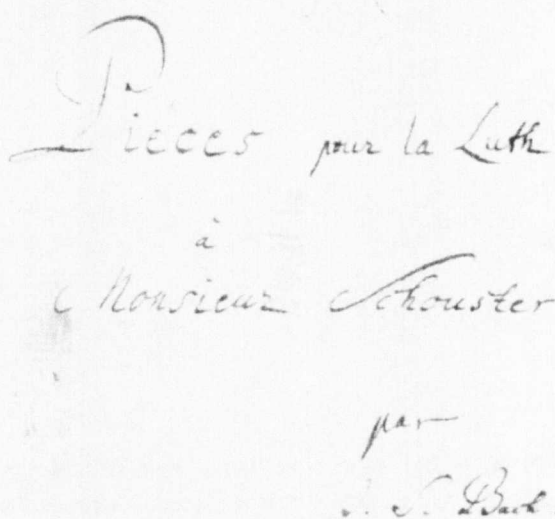 Pieces pour la Luth
à
Monsieur Schouster
par
J. S. Bach